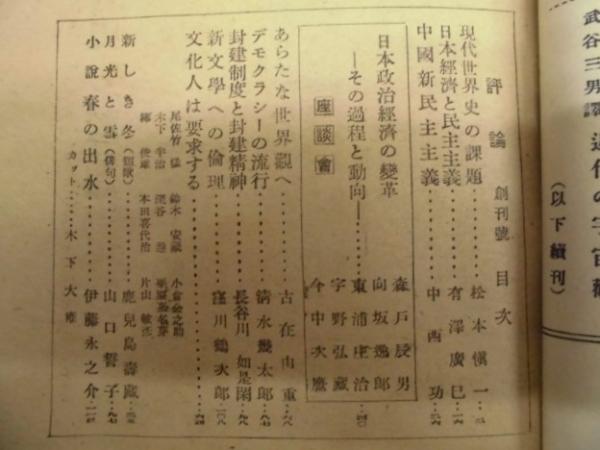 武谷三男譯 近代の宇宙觀
（以下續刊）
評論 創刊號 目次
現代世界史の課題……松本愼一
日本經濟と民主主義……有澤廣巳
中國新民主主義……中西功
日本政治經濟の變革
―その過程と動向―
座談會
森戸辰男
向坂逸郎
東浦庄治
宇野弘藏
今中次麿
あらたな世界觀へ……古在由重
デモクラシーの流行……清水幾太郎
封建制度と封建精神……長谷川如是閑
新文學への倫理……窪川鶴次郎
文化人は要求する
尾佐竹猛 鈴木安藏 小倉金之助
木下半治
本田喜代治 片山敏彦
新しき冬（短歌）……鹿兒島壽藏
月光と雪（俳句）……山口誓子
小說 春の出水……伊藤永之介
カット……木下大雍